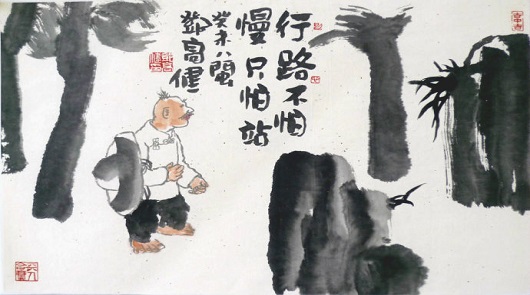 行路不怕
慢只怕站
癸未八閩
鄧高健